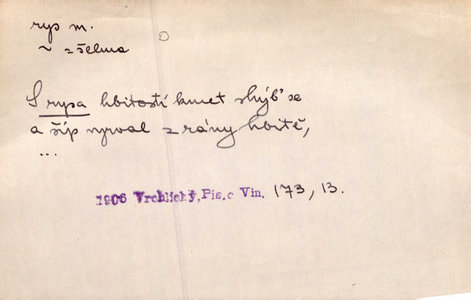 rys m.
~ = šelma
S rysa hbitostí kmet shýb' se
a šíp vyrval z rány hbitě,
...
1906 Vrchlický, Pís. o Vin. 173, 13.